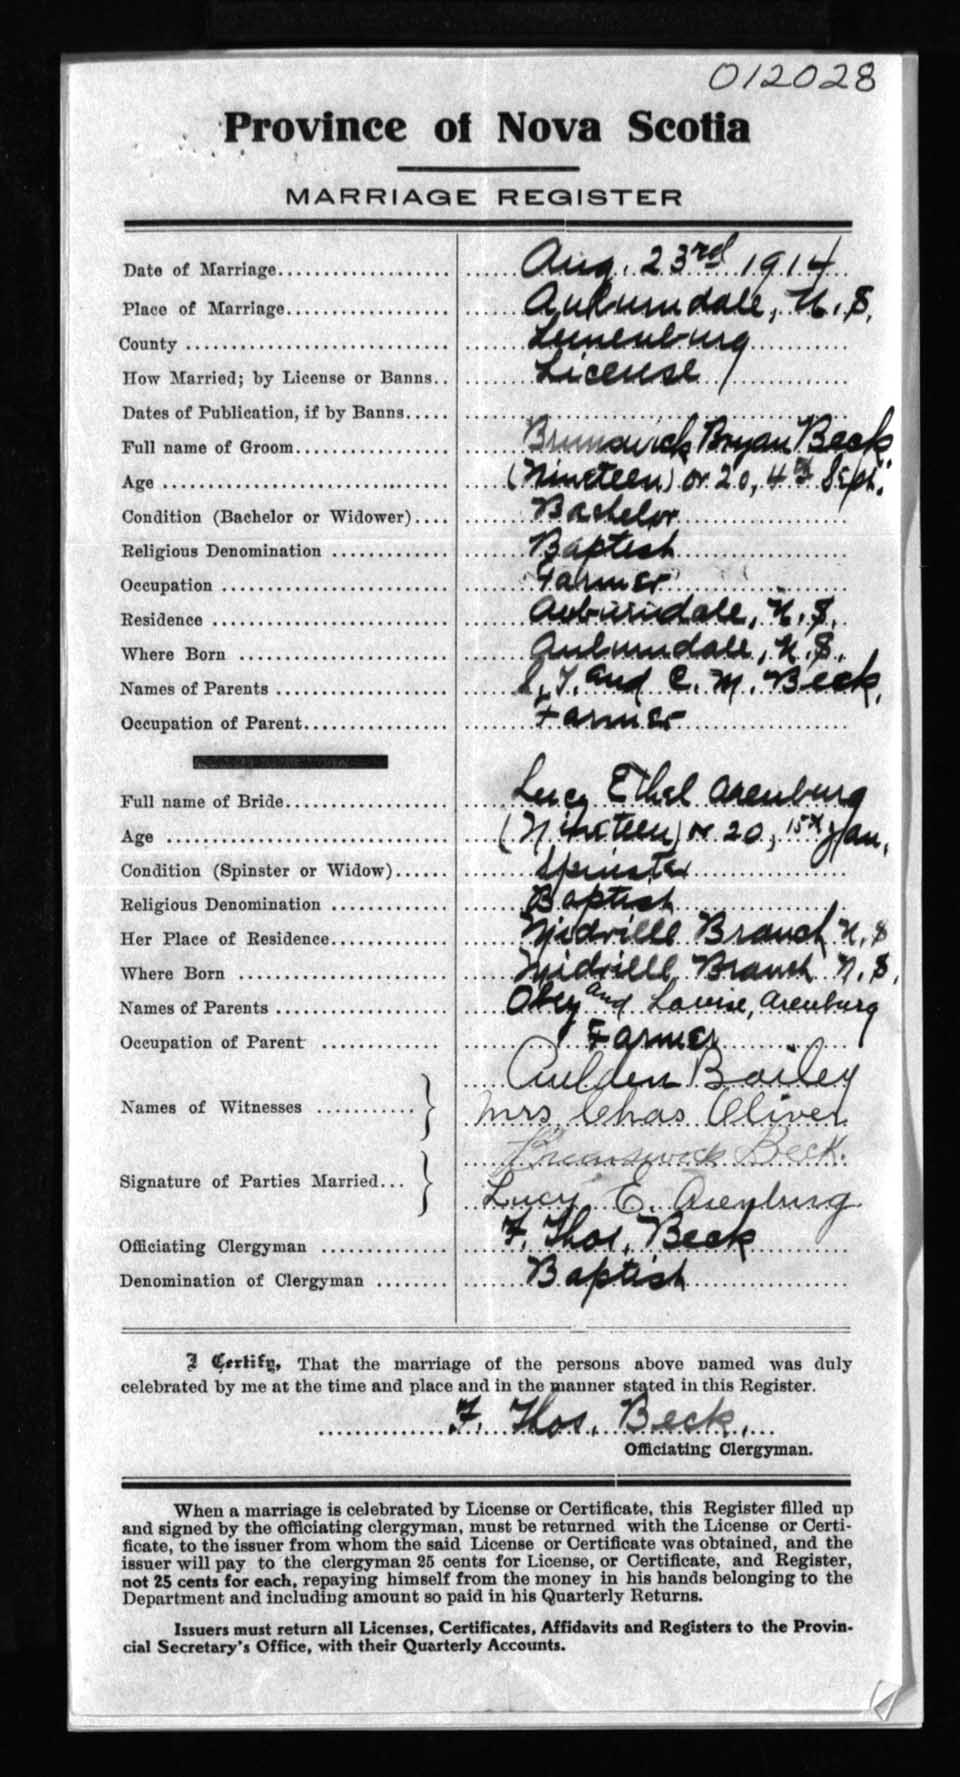 012028
Province of Nova Scotia
MARRIAGE REGISTER
Date of Marriage Aug. 23rd 1914
Place of Marriage Auburndale, N.S.
County Lunenburg
How Married; by License or Banns License
Dates of Publication, if by Banns
Full name of Groom Brunswick Bryan Beck
Age (Nineteen) or 20, 4th Sept.
Condition (Bachelor or Widower) Bachelor
Religious Denomination Baptist
Occupation Farmer
Residence Auburndale, N.S.
Where Born Auburndale, N.S.
Names of Parents S. T. and C. M. Beck,
Occupation of Parent Farmer
Full name of Bride Lucy Ethel Arenburg
Age (Nineteen) or 20, 15th Jan,
Condition (Spinster or Widow) Spinster
Religious Denomination Baptist
Her Place of Residence Midville Branch N.S
Where Born Midville Branch N.S,
Names of Parents Obey and Louise, Arenburg
Occupation of Parent Farmer
Names of Witnesses Aulden Bailey
Mrs Chas Oliver
Signature of Parties Married Brunswick Beck.
Lucy E. Arenburg
Officiating Clergyman F. Thos. Beck
Denomination of Clergyman Baptist
I Certify, That the marriage of the persons above named was duly
celebrated by me at the time and place and in the manner stated in this Register.
F. Thos. Beck,
Officiating Clergyman.
When a marriage is celebrated by License or Certificate, this Register filled up
and signed by the officiating clergyman, must be returned with the License or Certi-
ficate, to the issuer from whom the said License or Certificate was obtained, and the
issuer will pay to the clergyman 25 cents for License, or Certificate, and Register,
not 25 cents for each, repaying himself from the money in his hands belonging to the
Department and including amount so paid in his Quarterly Returns.
Issuers must return all Licenses, Certificates, Affidavits and Registers to the Provin-
cial Secretary's Office, with their Quarterly Accounts.